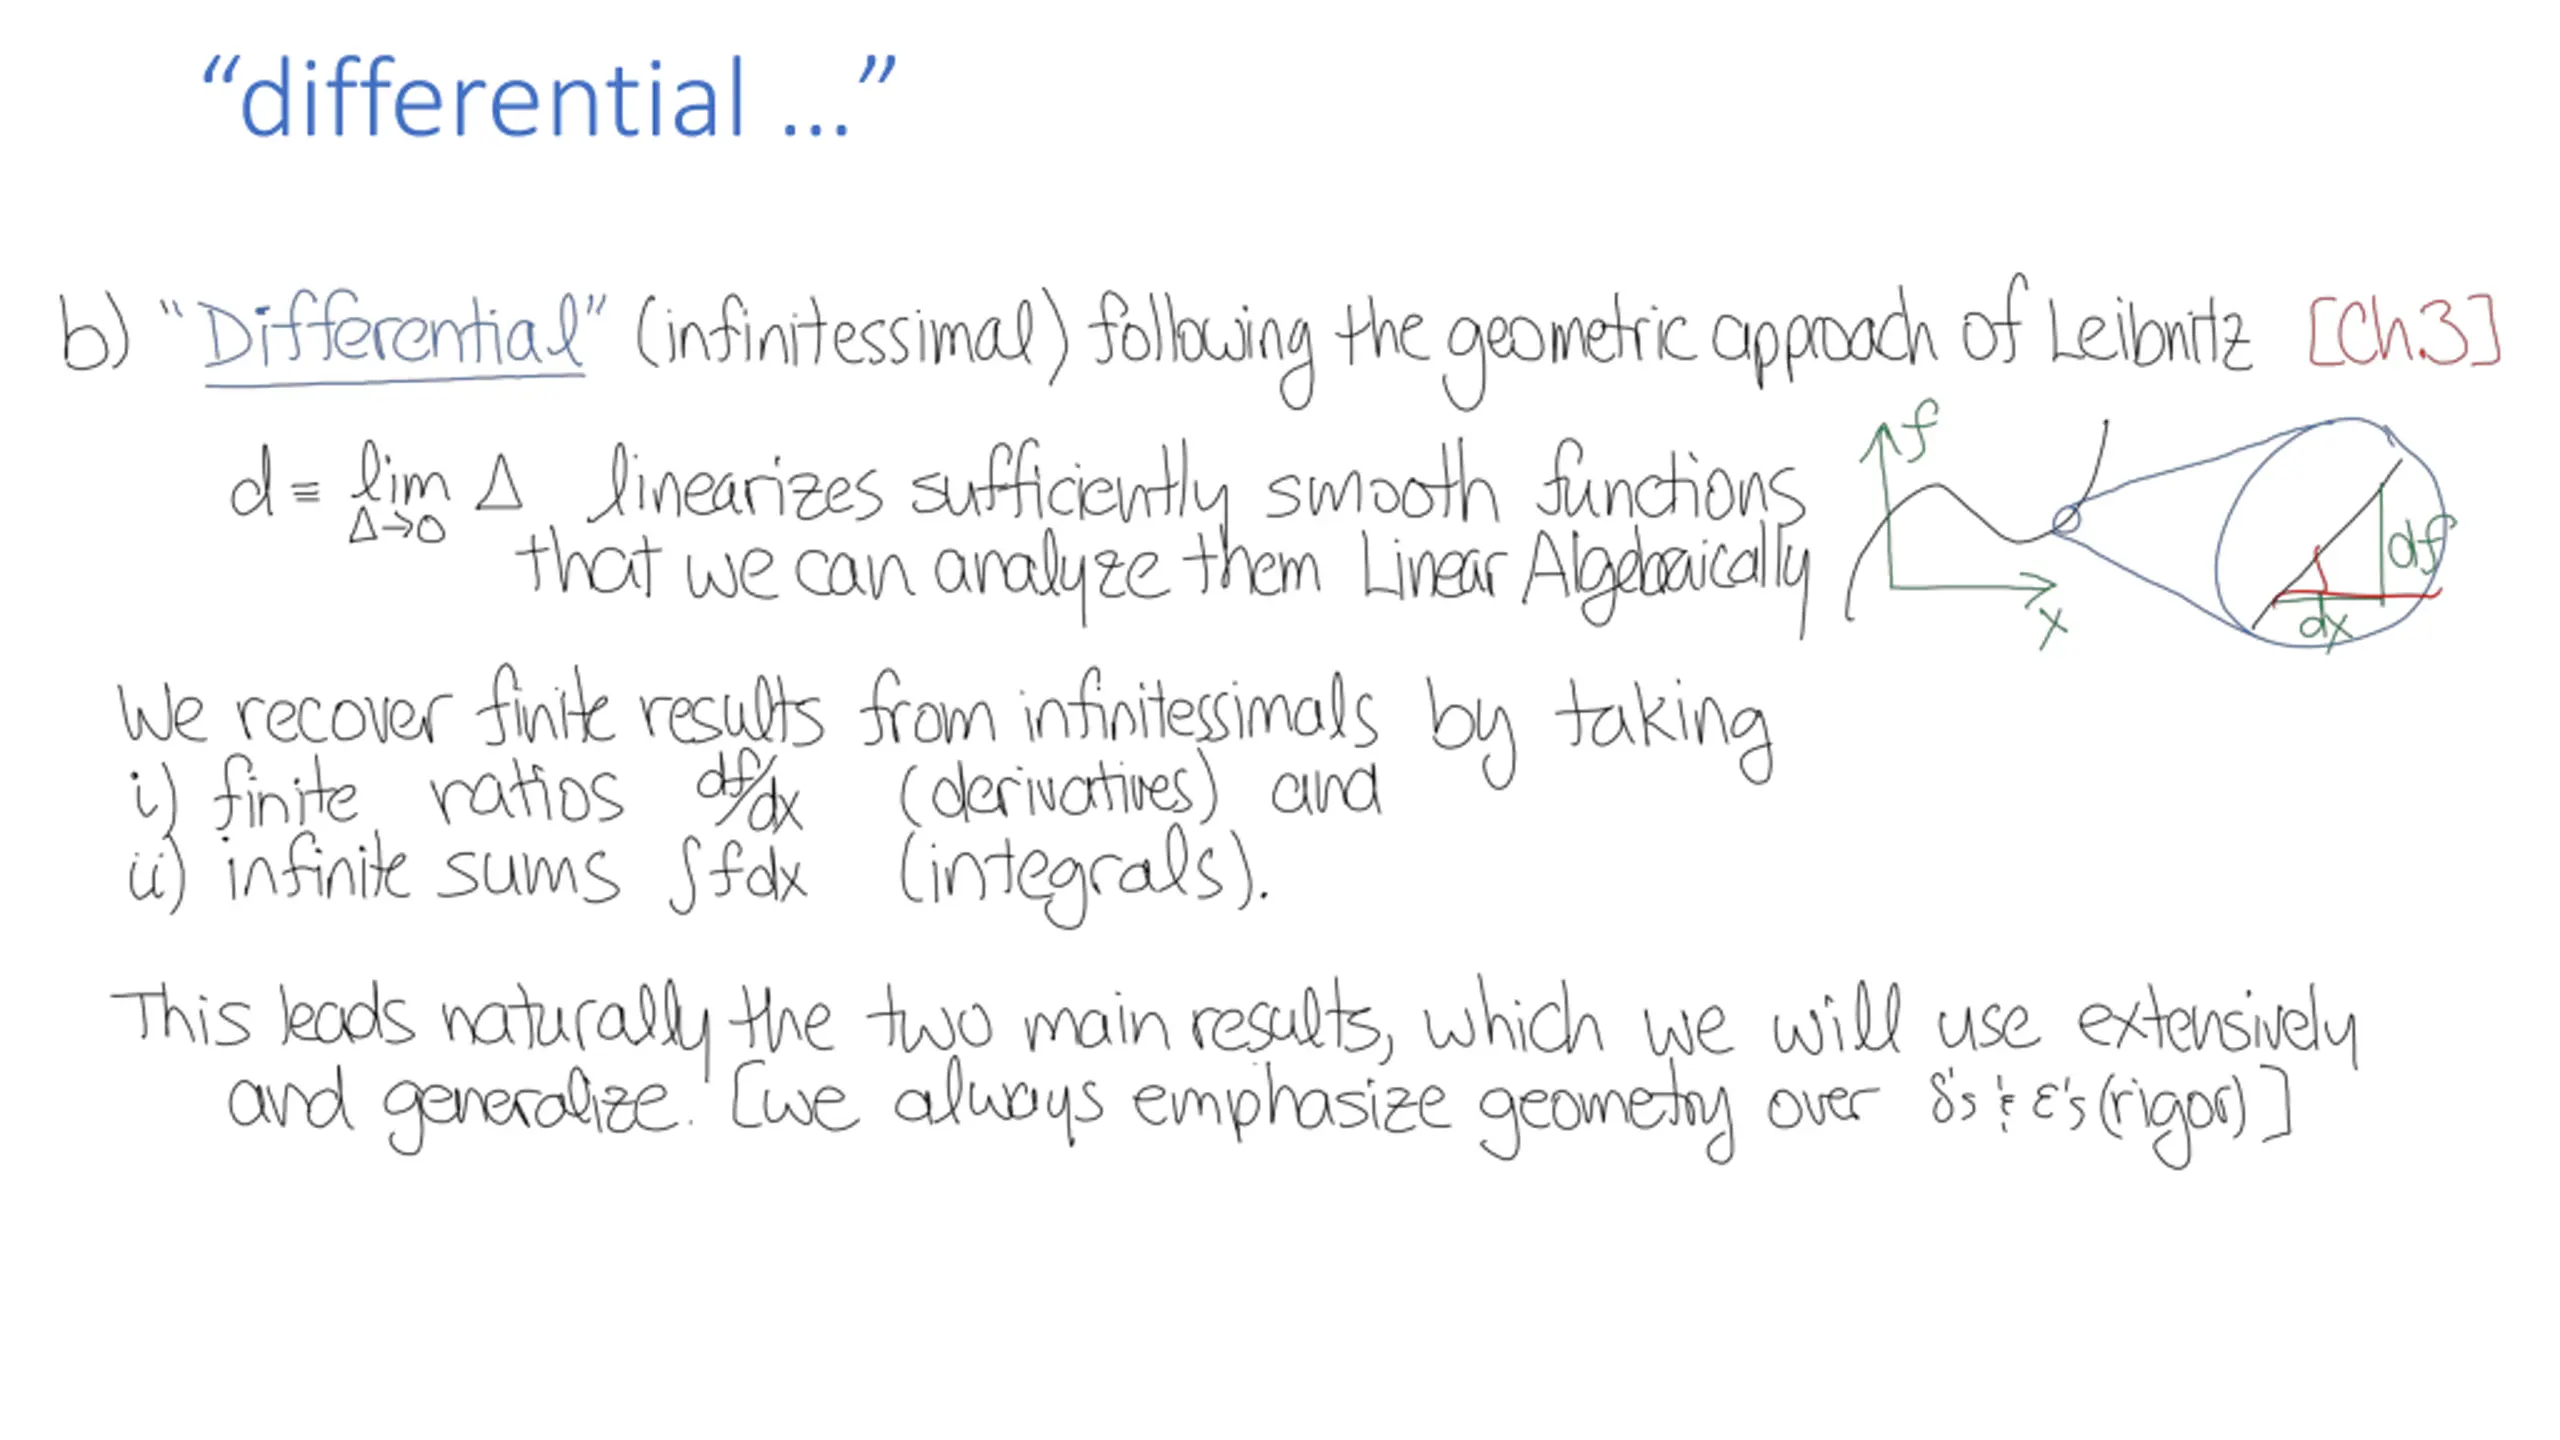 “differential ...”
b) "Differential" (infinitessimal) following the geometric approach of Leibnitz [Ch.3]
d ≡ lim Δ linearizes sufficiently smooth functions
Δ→0
that we can analyze them Linear Algebraically
f
x
df
dx
We recover finite results from infinitessimals by taking
i) finite ratios df/dx (derivatives) and
ii) infinite sums ∫fdx (integrals).
This leads naturally the two main results, which we will use extensively
and generalize. [we always emphasize geometry over δ's & ε's (rigor)]